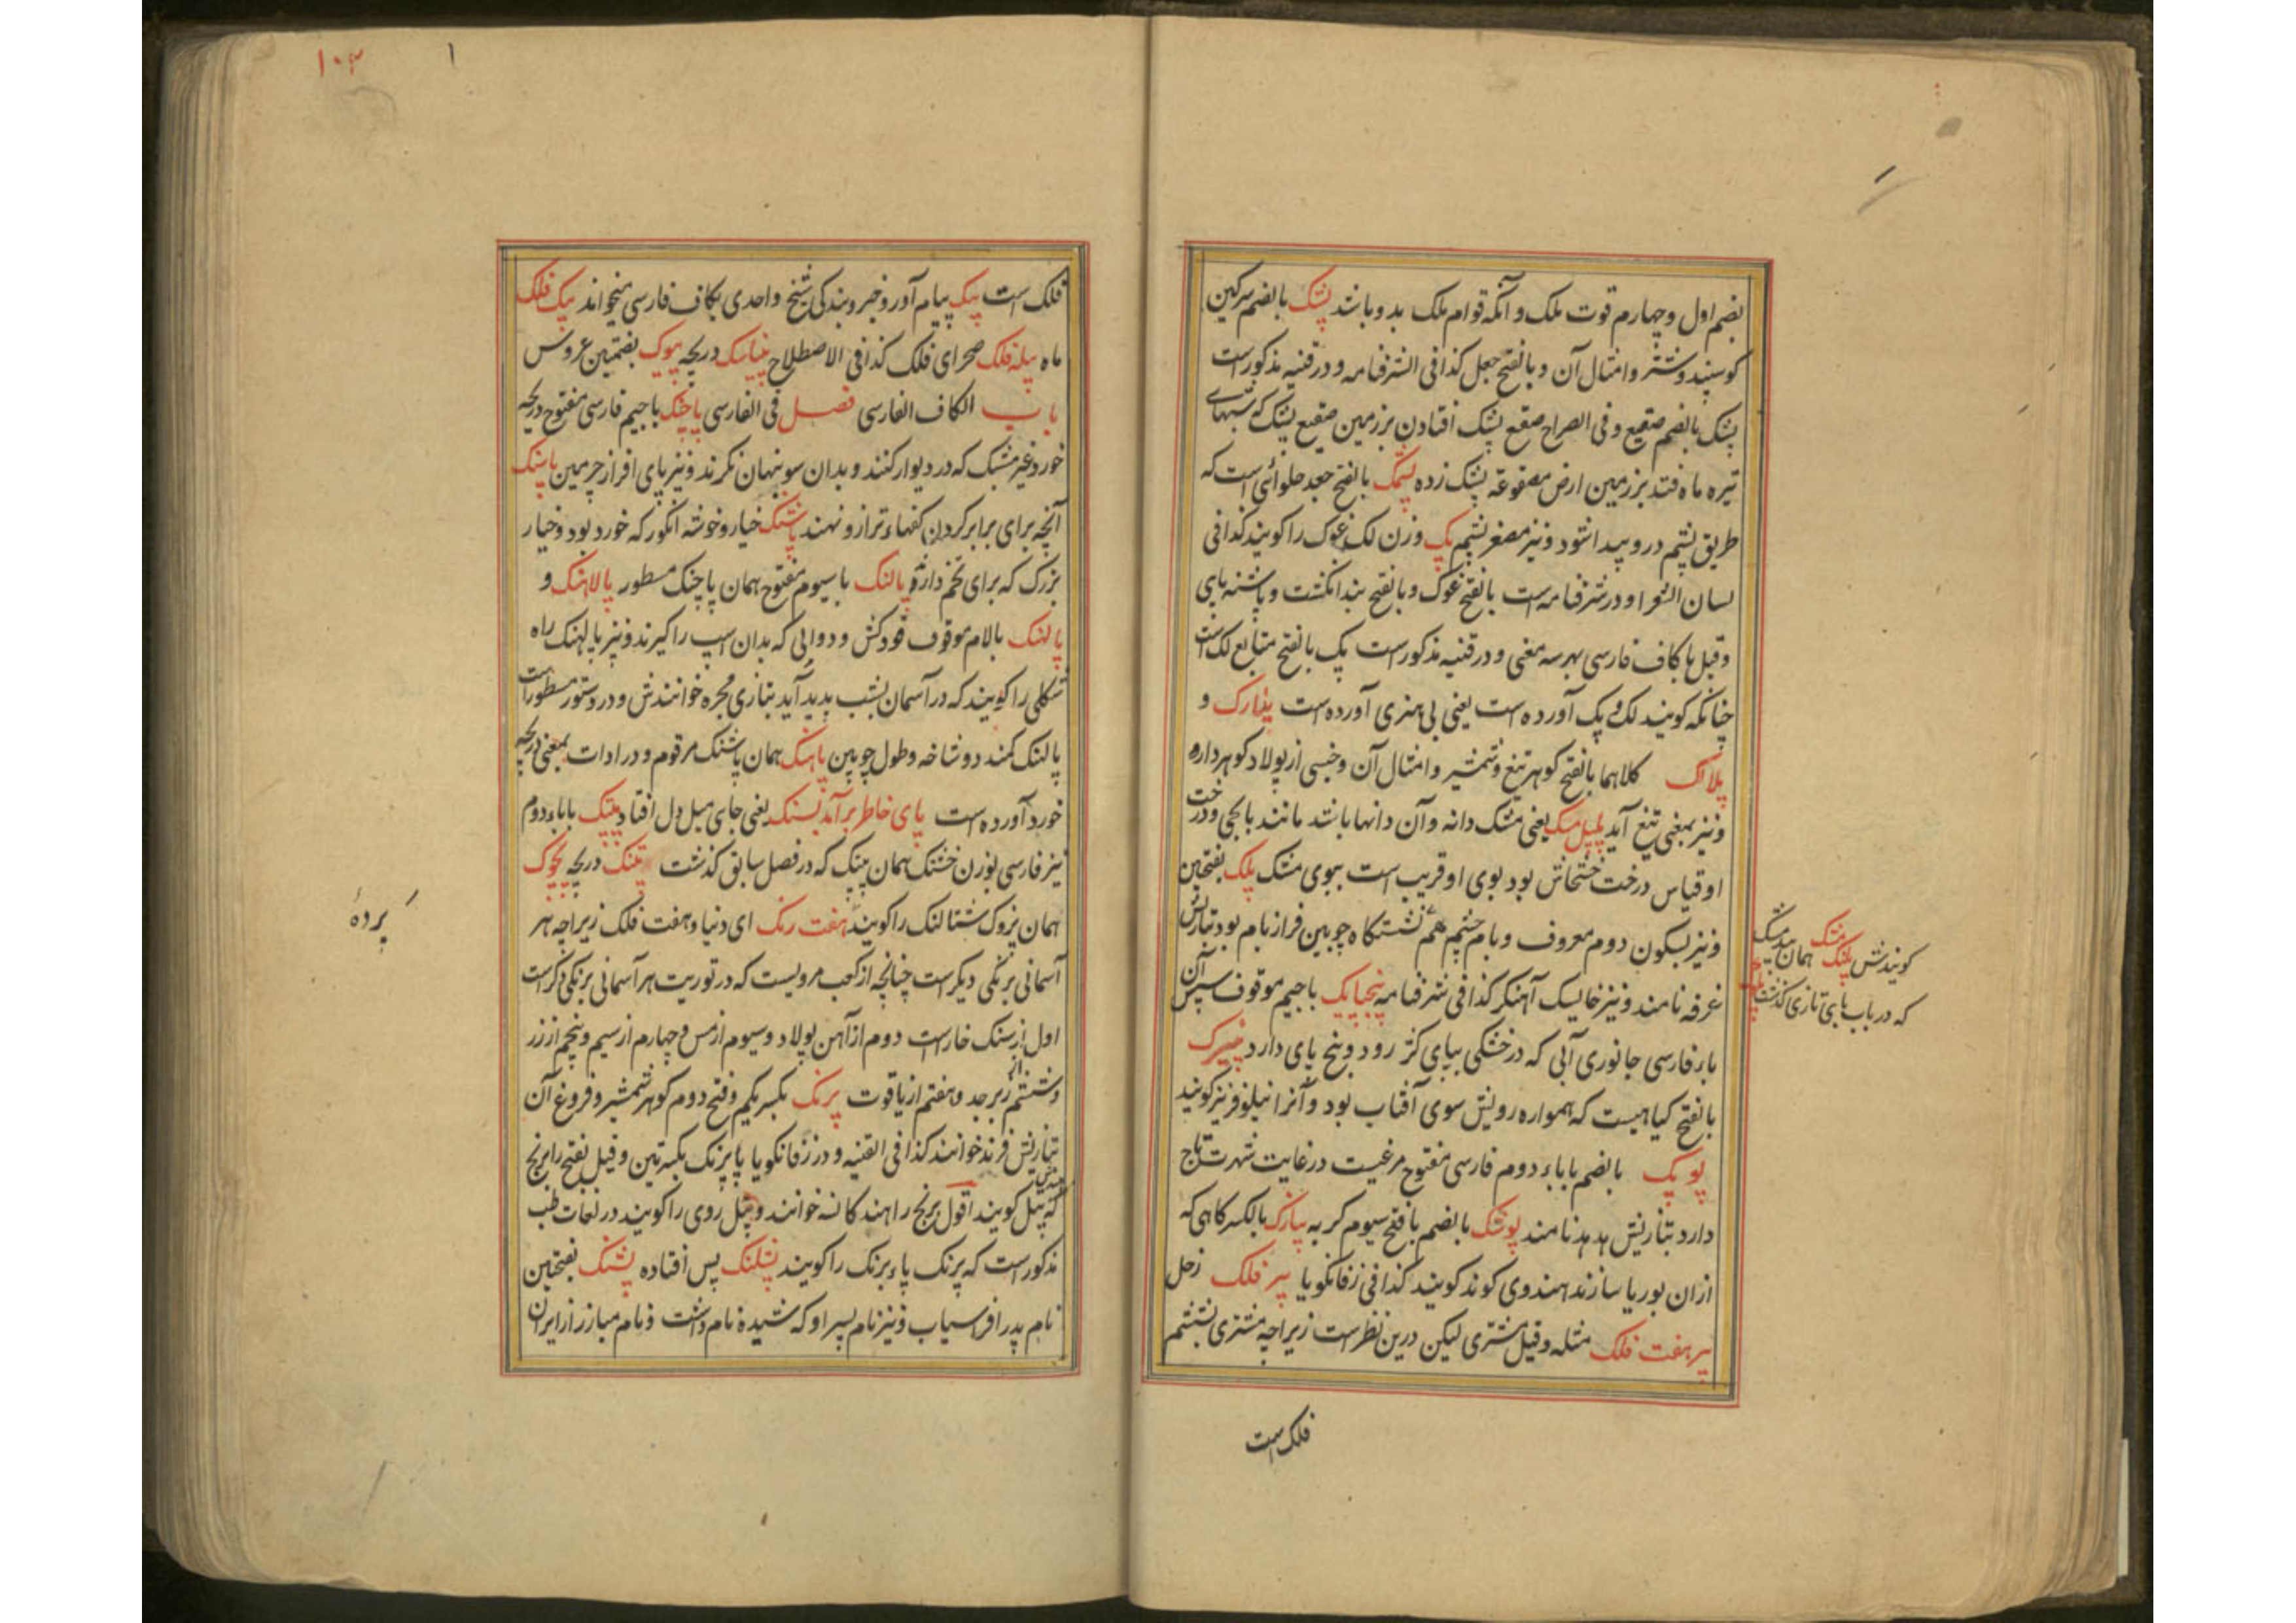 بضم اول وچهارم قوت ملک و آنکه قوام ملک بدو باشد پشک بالضم سرکین
کوسپند وشتر وامثال آن و بالفتح جعل کذا فی الشرفنامه و در قنیه مذکور است
پشک بالضم صقیع وفی الصراح صقع پشک افتادن بر زمین صقیع پشک که شبهای
تیره ماه فتد بر زمین ارض مصقوعة پشک زده پشمک بالفتح جعد حلوائی است که
طریق پشم درو پیدا شود و نیز مصغر پشم پک وزن لک غوک را کویند کذا فی
لسان الشعرا و در شرفنامه است بالفتح غوک و بالفتح بند انکشت و پاشنه پای
وقیل با کاف فارسی بهر سه معنی و در قنیه مذکور است پک بالفتح متابع لک است
چنانکه کویند لک و پک آورده است یعنی بی هنری آورده است پلارک و
پلالک کلاهما بالفتح کوهر تیغ وشمشیر وامثال آن وجنسی از پولاد کوهر دار
ونیز بمعنی تیغ آید پلپل مشک یعنی مشک دانه و آن دانها باشد مانند ودرخت
او قیاس درخت خشخاش بود بوی او قریب است ببوی مشک پلک بفتحین
ونیز بسکون دوم معروف و بام چشم هم نشستکاه چوبین فراز بام بود بتازیش
غرفه نامند ونیز خایسک آهنکر کذا فی شرفنامه پنجپایک باجیم موقوف سپس آن
باء فارسی جانوری آبی که در خشکی بپای کژ رود و پنج پای دارد
بالفتح کیاهیست که همواره رویش سوی آفتاب بود و آنرا نیلوفر نیز کویند
پوپک بالضم باباء دوم فارسی مفتوح مرغیست در غایت شهرت تاج
دارد بتازیش هدهد نامند پوشک بالضم با فتح سیوم کربه پیازک بالکسر کاهی که
ازان بوریا سازند هندوی کوند کویند کذا فی زفانکویا پیر فلک زحل
پیر هفت فلک مثله وقیل مشتری لیکن درین نظر است زیراچه مشتری بششم
فلک است
کویندش پلنک مشک همان بیدمشک
که در باب بای تازی کذشت
۱۰۳
۱
فلک است پیک پیام آور و خبر و بندکی شیخ واحدی بکاف فارسی میخواند پیک فلک
ماه پیله فلک صحرای فلک کذا فی الاصطلاح دریچه پیوک بضمتین عروس
باب الکاف الفارسی فصل فی الفارسی پاچنک باجیم فارسی مفتوح دریچه
خورد غیر مشبک که در دیوار کنند و بدان سو پنهان نکرند ونیز پای افزار چرمین پاسنک
آنچه برای برابر کردن کفهاء ترازو نهند پاشنک خیار وخوشه انکور که خورد بود وخیار
بزرک که برای تخم دارند پالنک باسیوم مفتوح همان پاچنک مسطور پالاهنک و
پالهنک بالام موقوف قودکش و دوالی که بدان اسپ را کیرند ونیز پالهنک راه
شکلی را کویند که در آسمان بشب پدید آید بتازی مجره خوانندش و در دستور مسطور است
پالنک کمند دو شاخه وطول چوبین پاهنک همان پاشنک مرقوم و در ادات بمعنی دریچه
خورد آورده است پای خاطر برآمد بسنک یعنی جای میل دل افتاد پپنک باباء دوم
نیز فارسی بوزن خشتک همان پپک که در فصل سابق کذشت پتنک دریچه پجوک
همان بزوک شتالنک را کویند هفت رنک ای دنیا وهفت فلک زیراچه هر
آسمانی برنکی دیکر است چنانچه از کعب مرویست که در توریت هر آسمانی برنکی دکر است
اول از سنک خاراست دوم از آهن پولاد وسیوم از مس وچهارم از سیم وپنجم از زر
وششم از زبرجد وهفتم از یاقوت پرنک بکسر یکم وفتح دوم کوهر شمشیر و فروغ آن
بتازیش فرند خوانند کذا فی القنیه و در زفانکویا پا پرنک بکسرتین وقیل بفتح را برنج
که پیتل کویند اقول برنج را هند کانسه خوانند و پیتل روی را کویند در لغات طب
مذکور است که پرنک پاء برنک را کویند پسلنک پس افتاده پشنک بفتحتین
نام پدر افراسیاب ونیز نام پسر او که شیده نام داشت ونام مبارز از ایران
پردهٔ